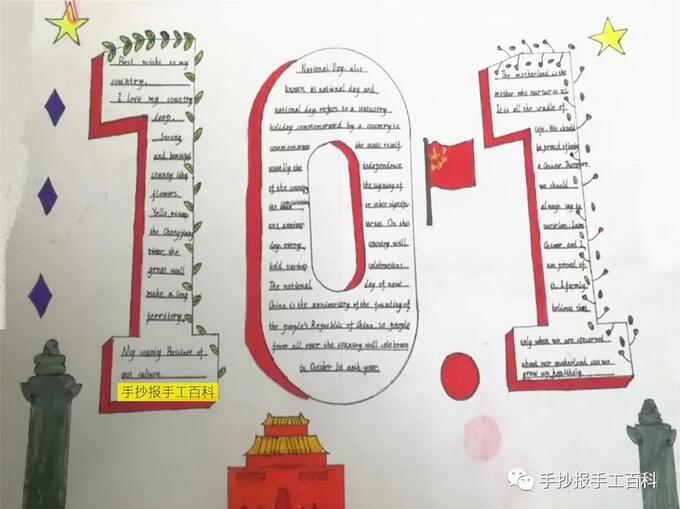 Best wishes to my
country.
I love my country
deep.
Strong
and beautiful
country like
flowers.
Yello river,
the Changjiang
river, the
great wall
make a long
territory.
My county
east culture.
手抄报手工百科
National Day, also
known as national day and
national day, refers to a statutory
holiday commemorated by a country to
commemorate
usually the
of the country
the
ont anniver
day, every
hold various
The national
the mass itself
independence
the signing of
or other signific
verses. On this
country will
celebrations
day of new
China is the anniversary of the founding of
the people's Republic of China, so people
from all over the country will celebrate
in October 1st each year.
The motherland is the
mother who nurture us
It is all the cradle of
life. We should
be proud of being
a Chinese. Therefore
we should
always say to
ourselves, I am
Chinese and I
am proud of
it. I firmly
believes that
only when we are concerned
about our motherland can we
grow up healthily
手抄报手工百科